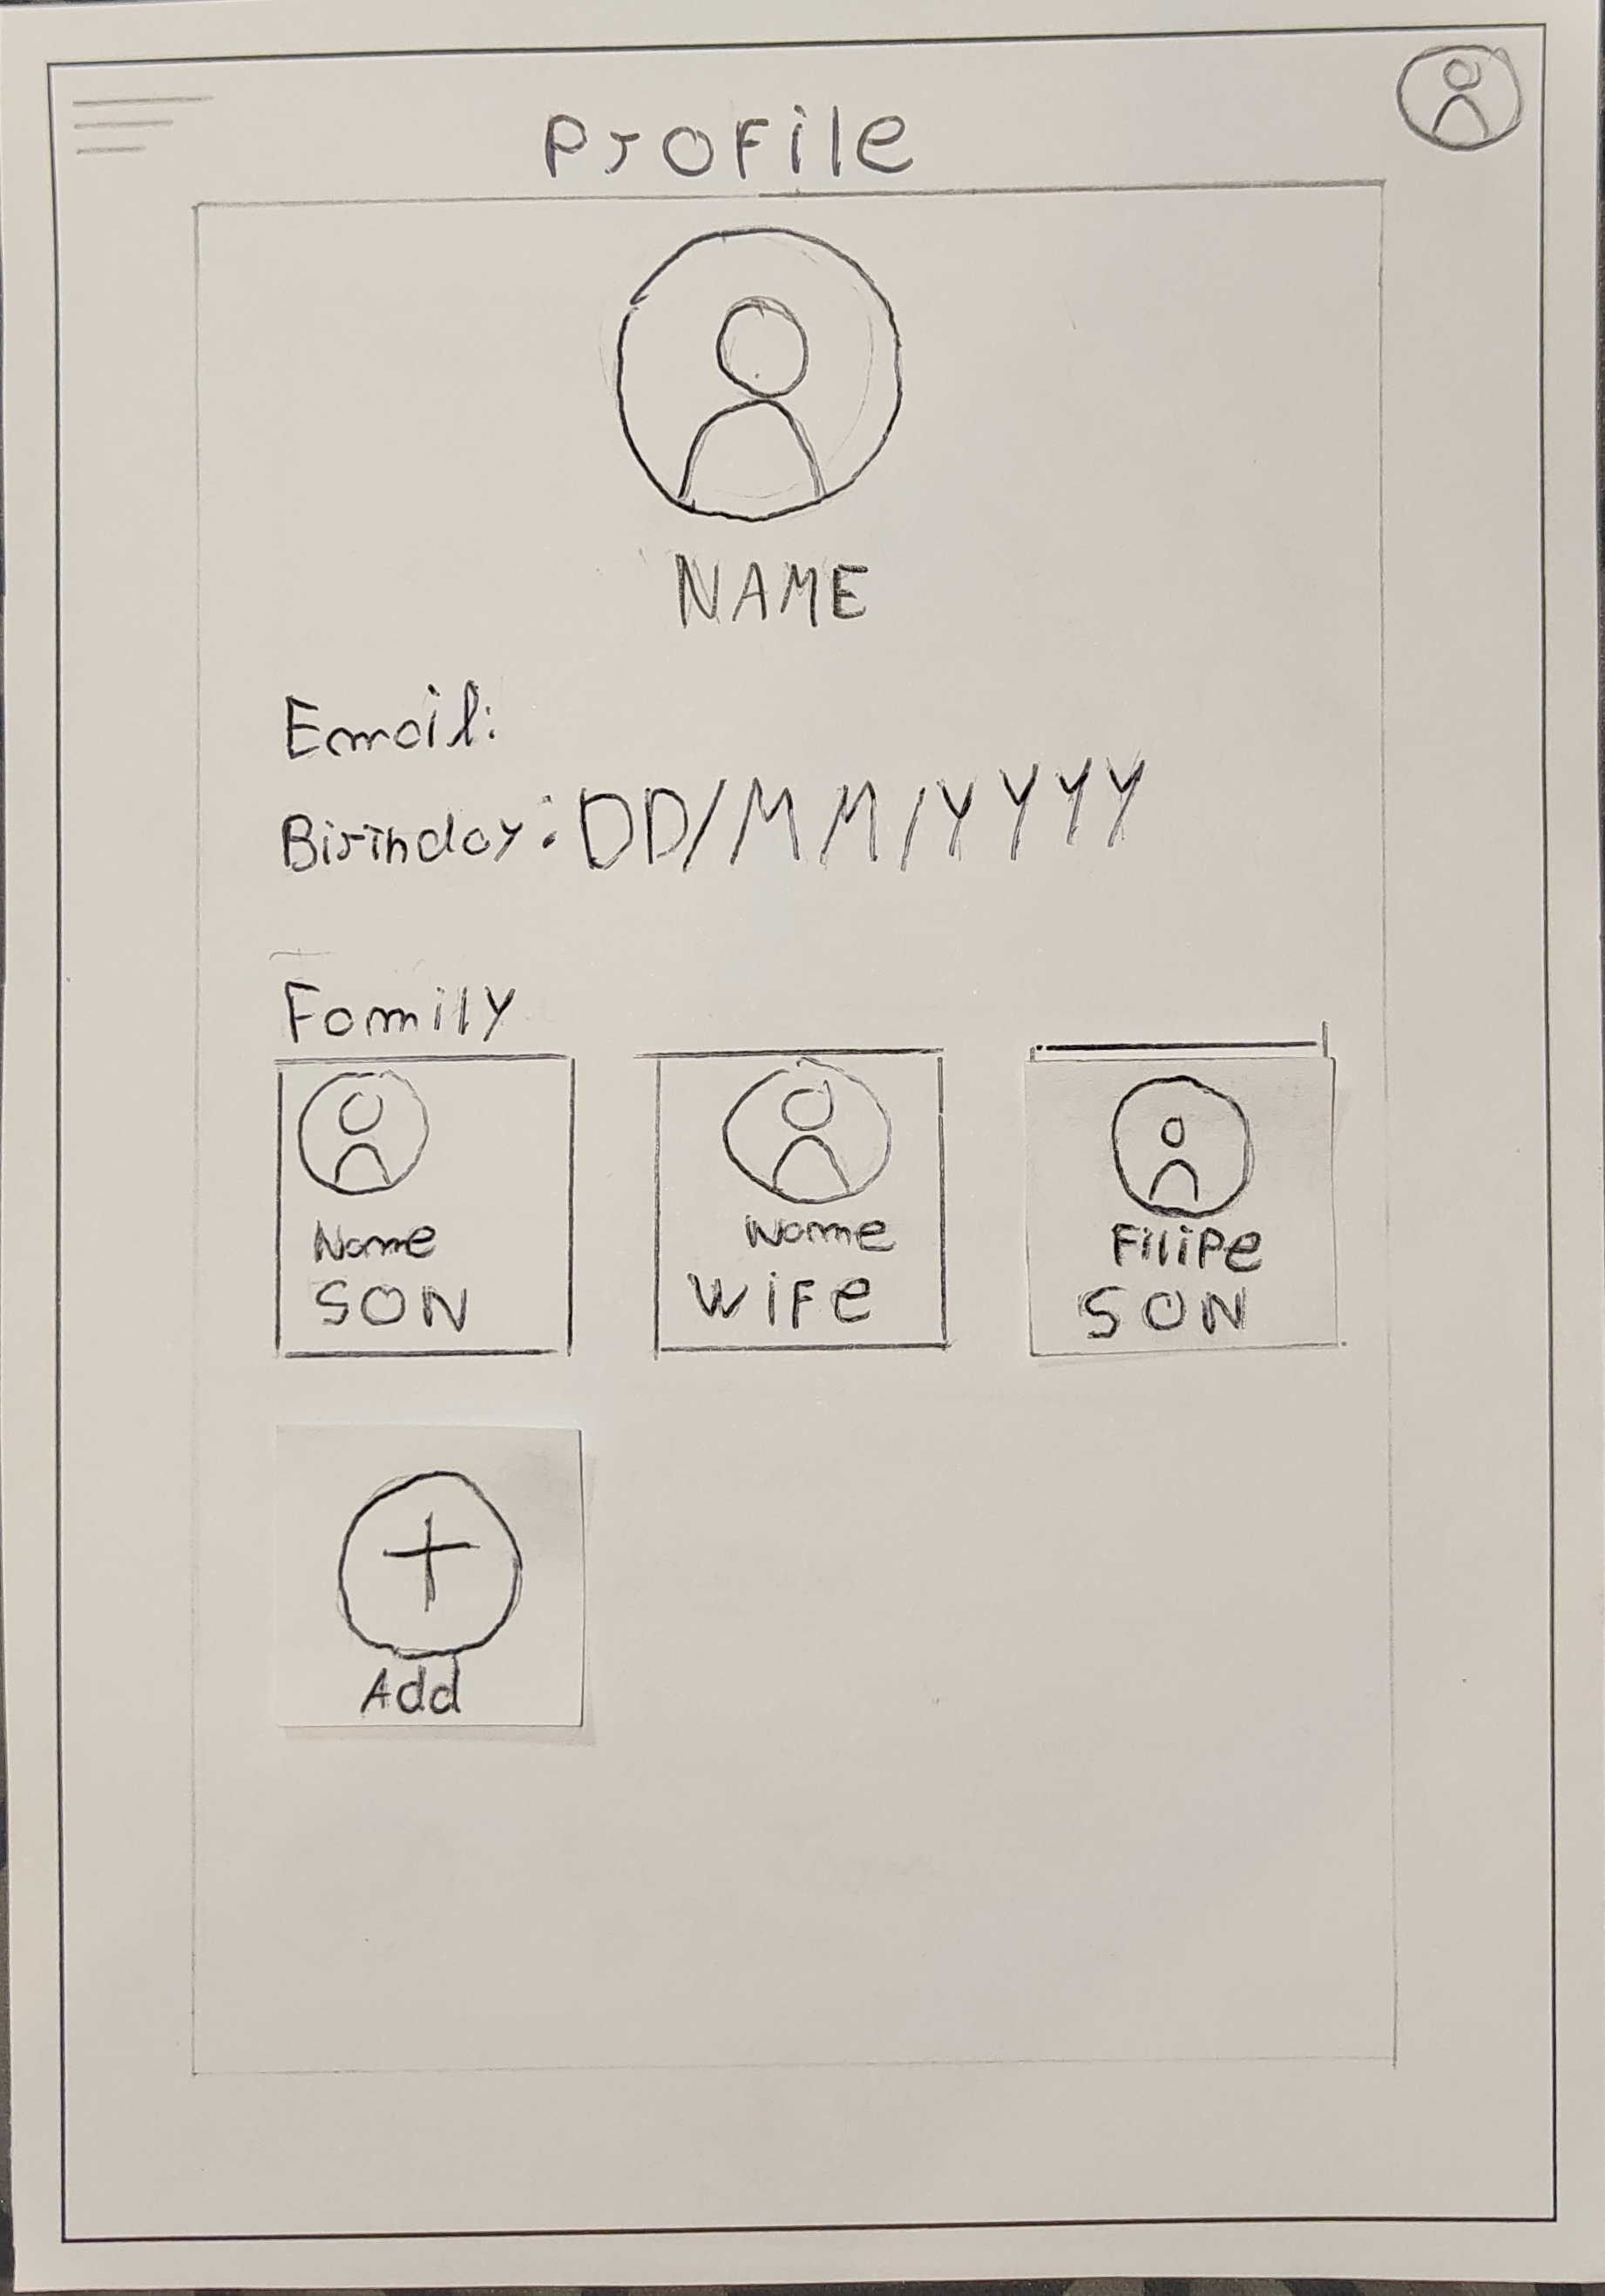 Profile
NAME
Email:
Birthday: DD/MM/YYYY
Family
Name
SON
Name
Wife
Filipe
SON
Add